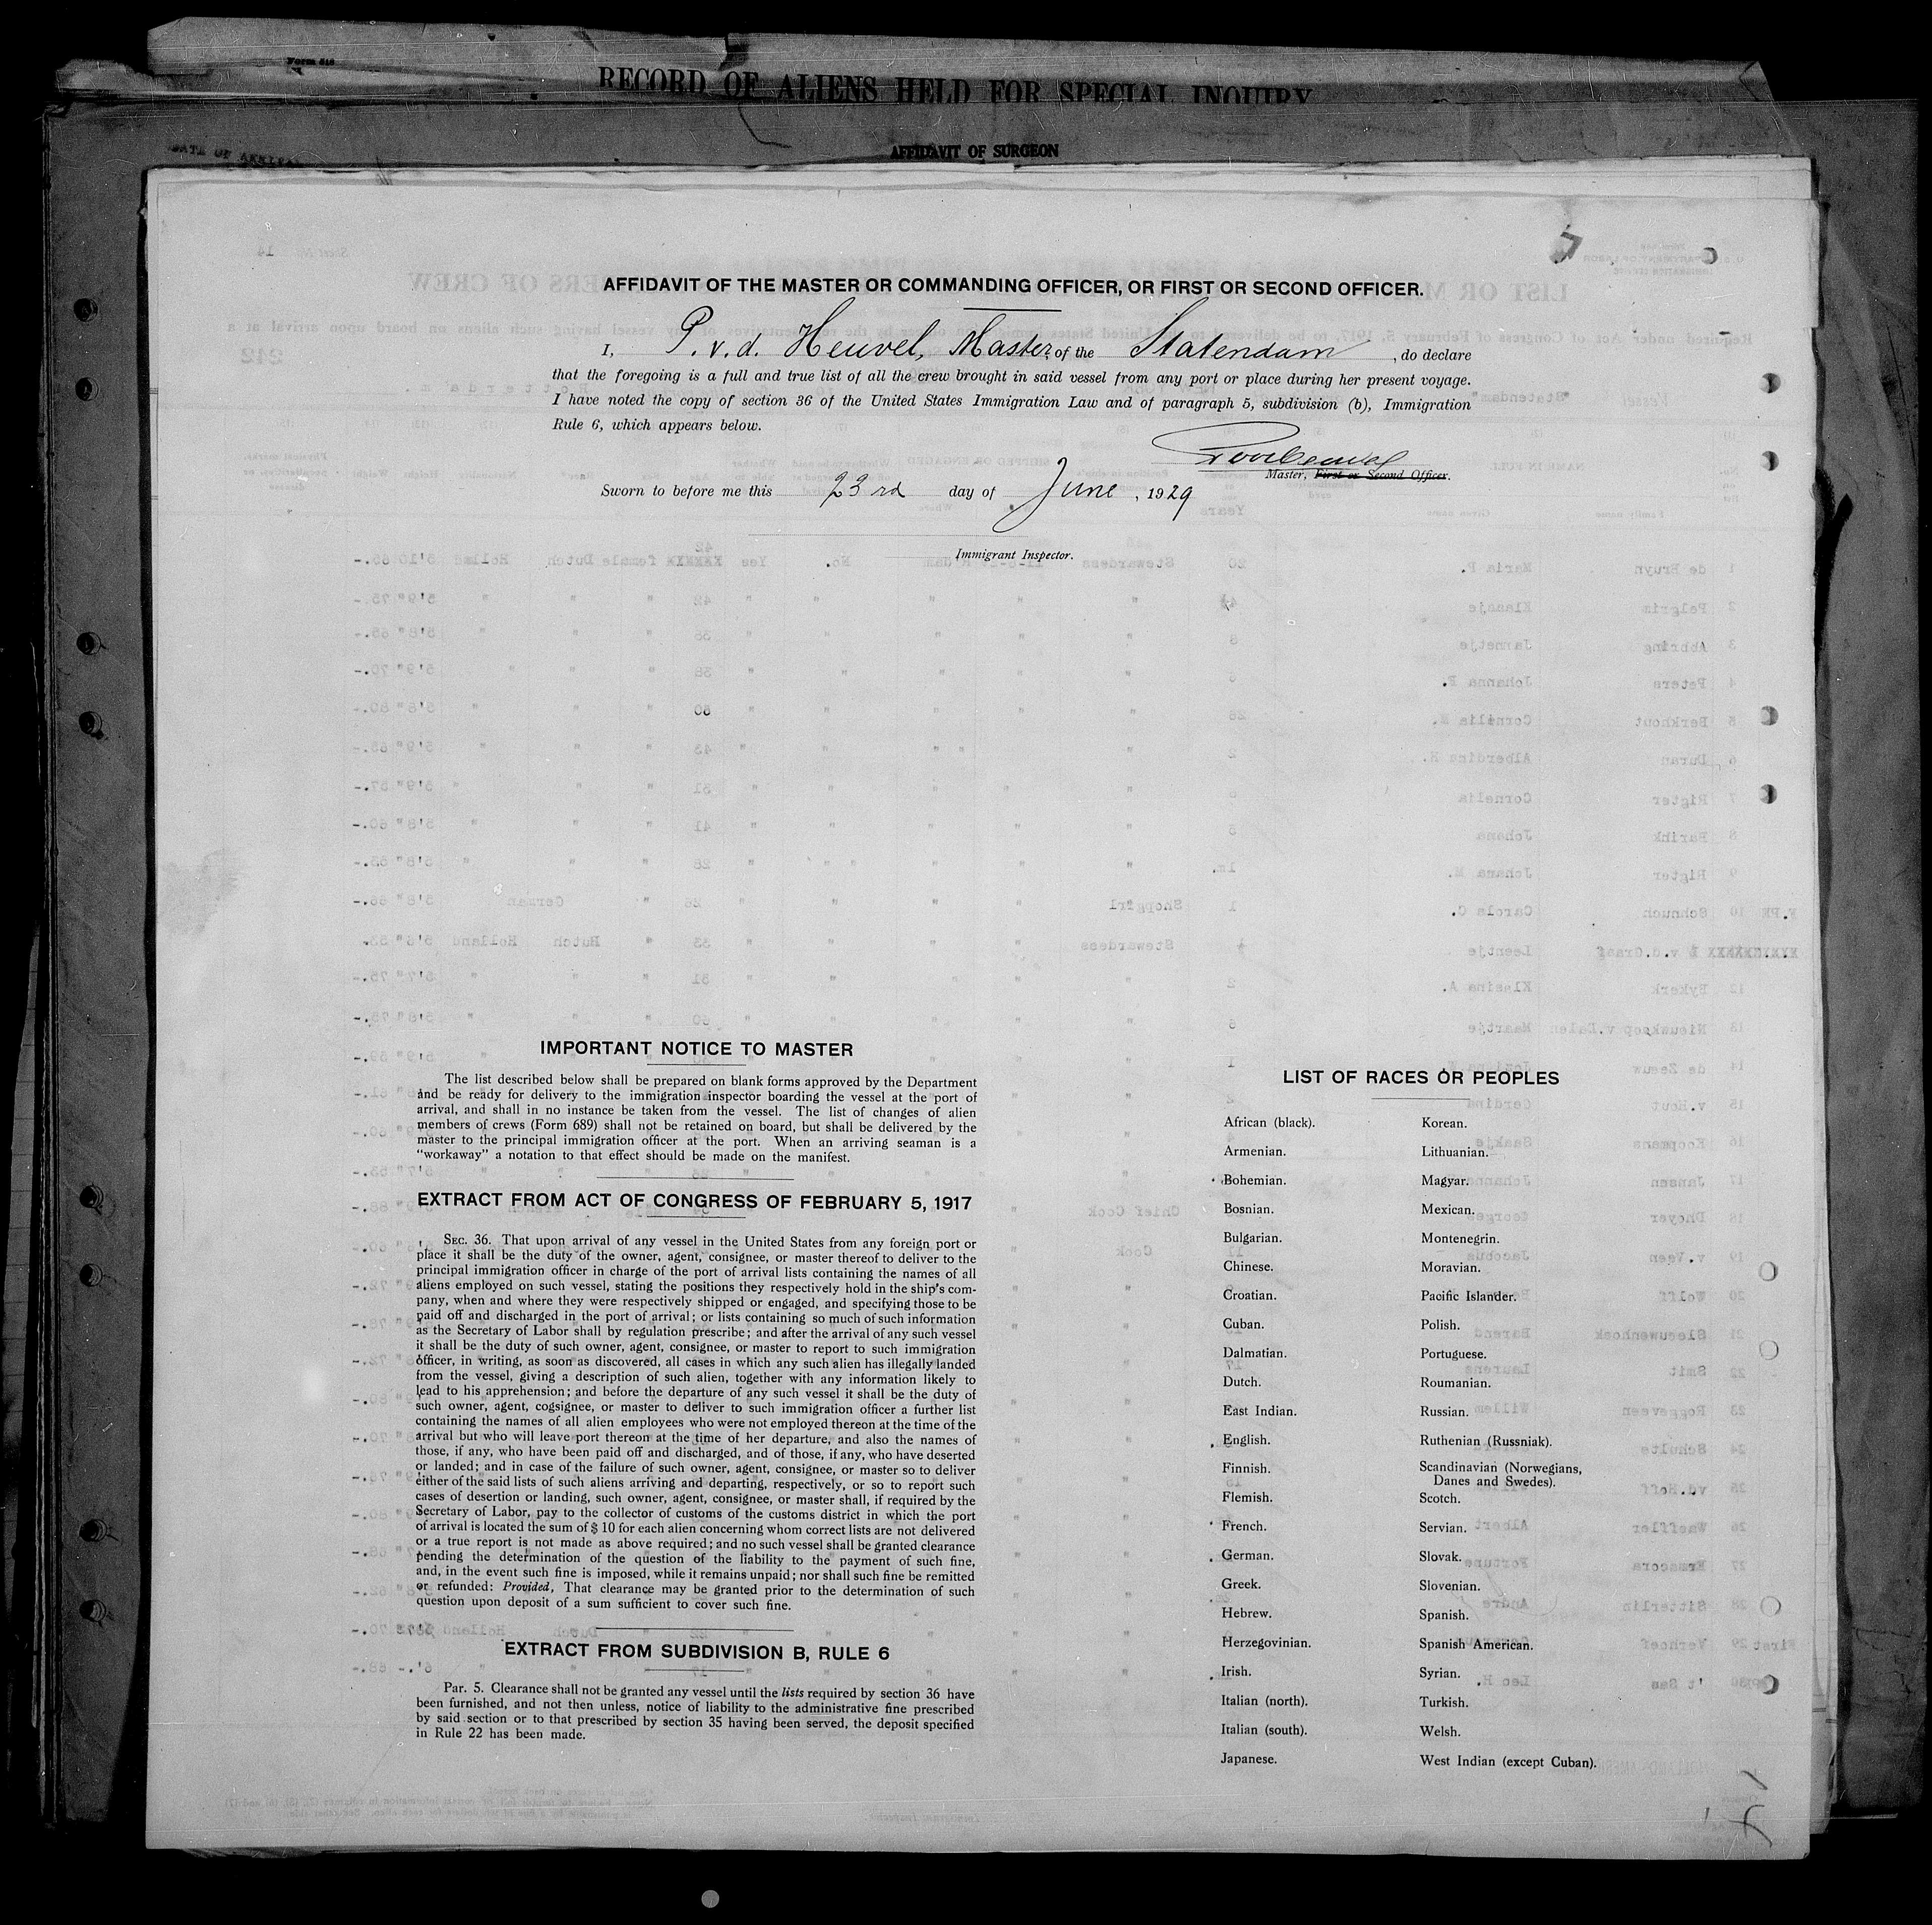 Form 518
RECORD OF ALIENS HELD FOR SPECIAL INQUIRY
DATE OF ARRIVAL
AFFIDAVIT OF SURGEON
AFFIDAVIT OF THE MASTER OR COMMANDING OFFICER, OR FIRST OR SECOND OFFICER.
I, P. v. d. Heuvel, Master, of the Statendam, do declare
that the foregoing is a full and true list of all the crew brought in said vessel from any port or place during her present voyage.
I have noted the copy of section 36 of the United States Immigration Law and of paragraph 5, subdivision (b), Immigration
Rule 6, which appears below.
Master, First or Second Officer.
Sworn to before me this 23rd day of June, 1929
Immigrant Inspector.
IMPORTANT NOTICE TO MASTER
The list described below shall be prepared on blank forms approved by the Department
and be ready for delivery to the immigration inspector boarding the vessel at the port of
arrival, and shall in no instance be taken from the vessel. The list of changes of alien
members of crews (Form 689) shall not be retained on board, but shall be delivered by the
master to the principal immigration officer at the port. When an arriving seaman is a
“workaway” a notation to that effect should be made on the manifest.
EXTRACT FROM ACT OF CONGRESS OF FEBRUARY 5, 1917
SEC. 36. That upon arrival of any vessel in the United States from any foreign port or
place it shall be the duty of the owner, agent, consignee, or master thereof to deliver to the
principal immigration officer in charge of the port of arrival lists containing the names of all
aliens employed on such vessel, stating the positions they respectively hold in the ship's com-
pany, when and where they were respectively shipped or engaged, and specifying those to be
paid off and discharged in the port of arrival; or lists containing so much of such information
as the Secretary of Labor shall by regulation prescribe; and after the arrival of any such vessel
it shall be the duty of such owner, agent, consignee, or master to report to such immigration
officer, in writing, as soon as discovered, all cases in which any such alien has illegally landed
from the vessel, giving a description of such alien, together with any information likely to
lead to his apprehension; and before the departure of any such vessel it shall be the duty of
such owner, agent, cogsignee, or master to deliver to such immigration officer a further list
containing the names of all alien employees who were not employed thereon at the time of the
arrival but who will leave port thereon at the time of her departure, and also the names of
those, if any, who have been paid off and discharged, and of those, if any, who have deserted
or landed; and in case of the failure of such owner, agent, consignee, or master so to deliver
either of the said lists of such aliens arriving and departing, respectively, or so to report such
cases of desertion or landing, such owner, agent, consignee, or master shall, if required by the
Secretary of Labor, pay to the collector of customs of the customs district in which the port
of arrival is located the sum of $ 10 for each alien concerning whom correct lists are not delivered
or a true report is not made as above required; and no such vessel shall be granted clearance
pending the determination of the question of the liability to the payment of such fine,
and, in the event such fine is imposed, while it remains unpaid; nor shall such fine be remitted
or refunded: Provided, That clearance may be granted prior to the determination of such
question upon deposit of a sum sufficient to cover such fine.
EXTRACT FROM SUBDIVISION B, RULE 6
Par. 5. Clearance shall not be granted any vessel until the lists required by section 36 have
been furnished, and not then unless, notice of liability to the administrative fine prescribed
by said section or to that prescribed by section 35 having been served, the deposit specified
in Rule 22 has been made.
LIST OF RACES OR PEOPLES
African (black).
Armenian.
Bohemian.
Bosnian.
Bulgarian.
Chinese.
Croatian.
Cuban.
Dalmatian.
Dutch.
East Indian.
English.
Finnish.
Flemish.
French.
German.
Greek.
Hebrew.
Herzegovinian.
Irish.
Italian (north).
Italian (south).
Japanese.
Korean.
Lithuanian.
Magyar.
Mexican.
Montenegrin.
Moravian.
Pacific Islander.
Polish.
Portuguese.
Roumanian.
Russian.
Ruthenian (Russniak).
Scandinavian (Norwegians,
Danes and Swedes).
Scotch.
Servian.
Slovak.
Slovenian.
Spanish.
Spanish American.
Syrian.
Turkish.
Welsh.
West Indian (except Cuban).